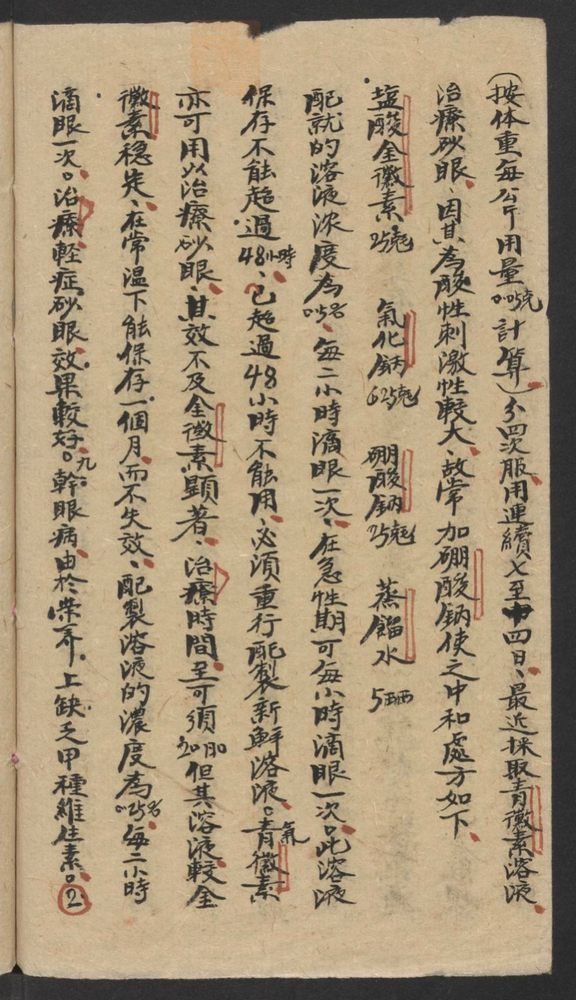 (按体重每公斤用量0.05克計算)分四次服用連續七至十四日、最近採取青黴素溶液
治療砂眼、因其為酸性刺激性較大、故常加硼酸鈉使之中和處方如下、
塩酸金黴素25克 氯化鈉625克 硼酸鈉25克 蒸餾水5西西
配就的溶液浓度為0.5%、每二小時滴眼一次、在急性期可每小時滴眼一次。此溶液
保存不能超過48小時、已超過48小時不能用、必須重行配製新鮮溶液。青氣黴素
亦可用以治療砂眼、其效不及金黴素顯著、治療時間至可須20-30但其溶液較金
黴素穩定、在常溫下能保存一個月、而不失效、配製溶液的濃度為0.25%每二小時
滴眼一次。治療輕症砂眼效果較好。九.幹眼病、由於榮养上缺乏甲種維生素。2